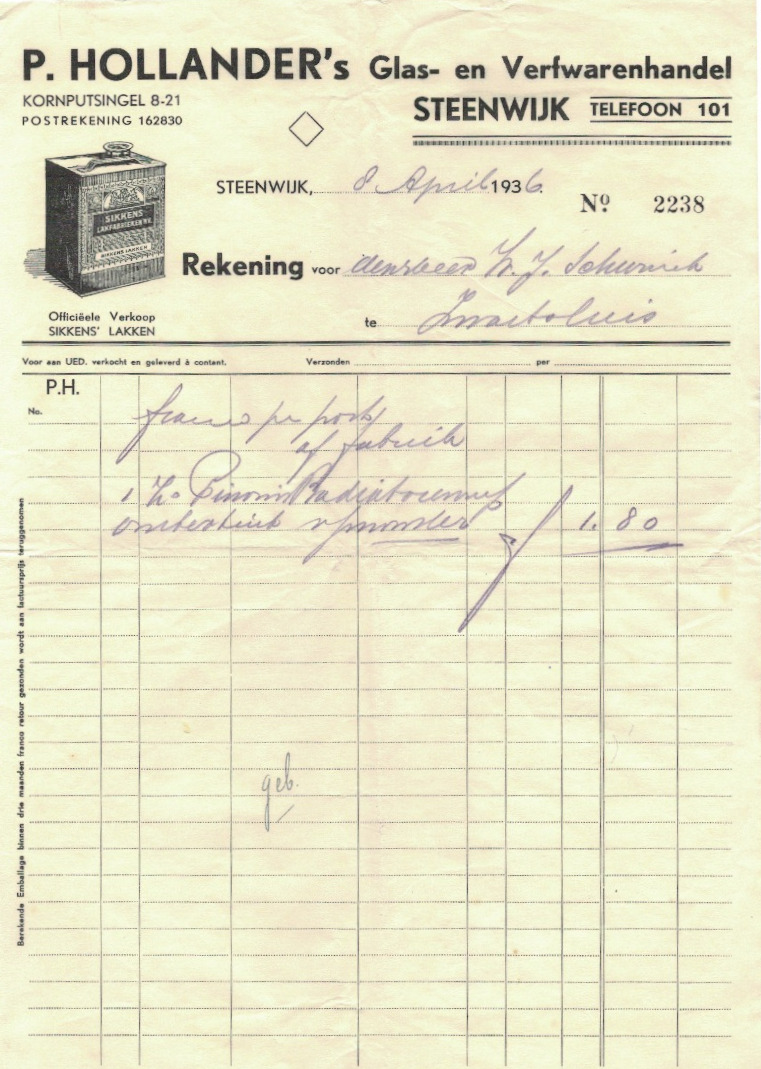 P. HOLLANDER's Glas- en Verfwarenhandel
KORNPUTSINGEL 8-21
POSTREKENING 162830
STEENWIJK TELEFOON 101
STEENWIJK, 8 April 1936.
No 2238
SIKKENS
LAKFABRIEKEN N.V.
SIKKENS LAKKEN
Rekening voor denheer
te
Officiëele Verkoop
SIKKENS' LAKKEN
Voor aan UED. verkocht en geleverd à contant. Verzonden per
P.H.
No.
franco per post
af fabriek
1
1.80
geb.
Berekende Emballage binnen drie maanden franco retour gezonden wordt aan factuursprijs teruggenomen